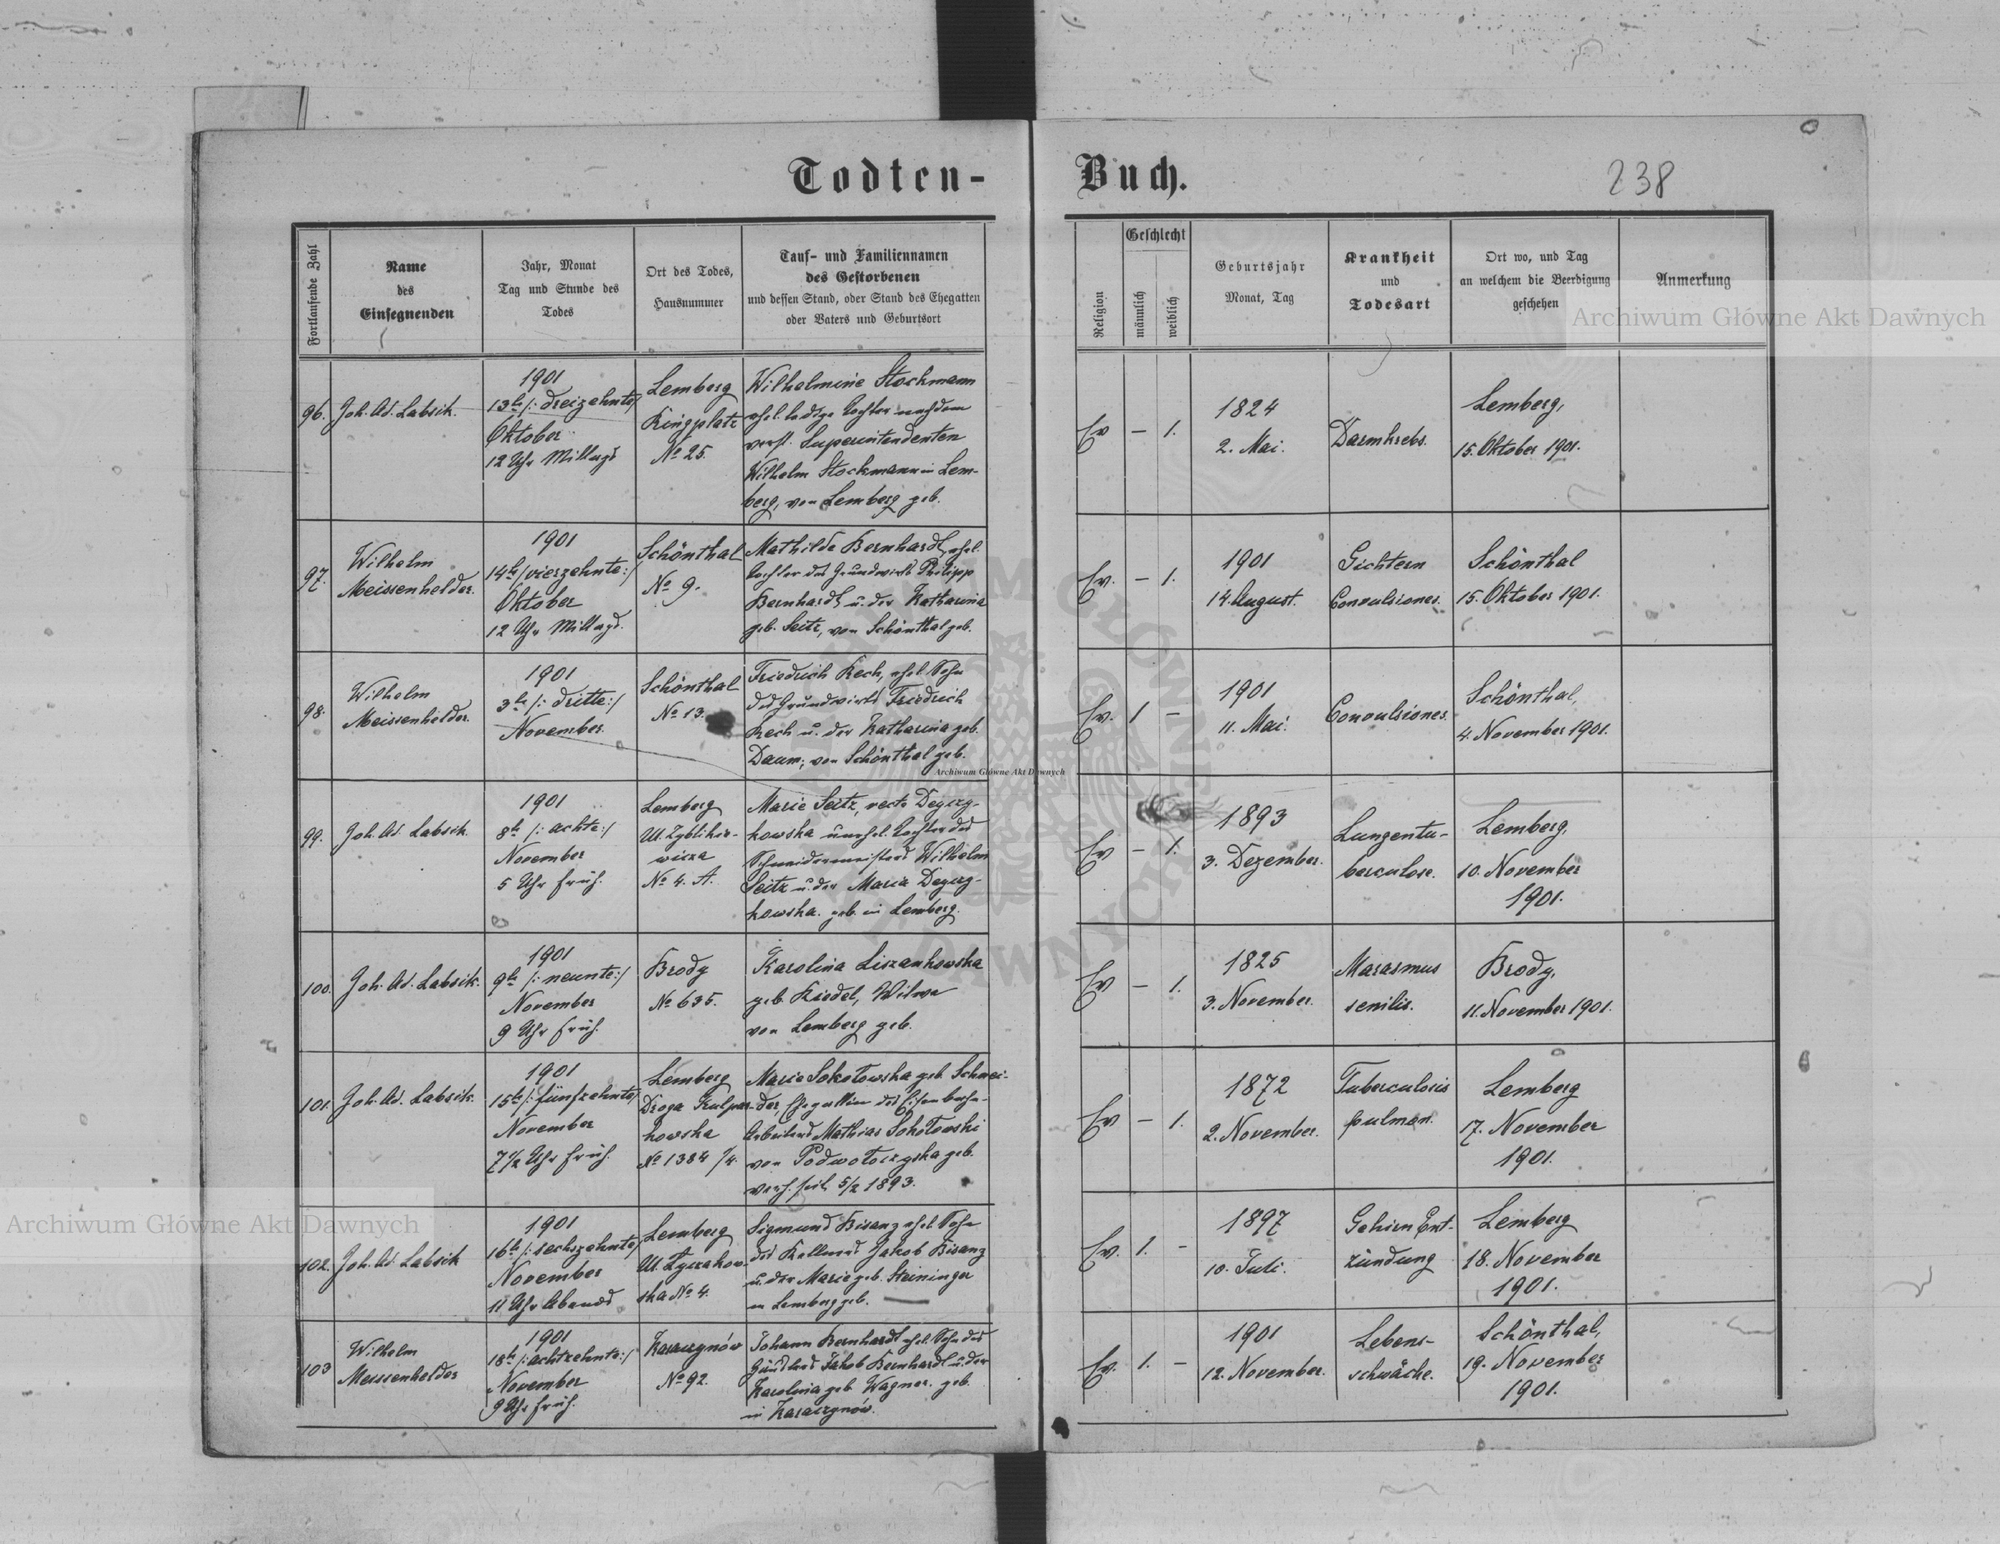 Todten-Buch.
238
Fortlaufende Zahl
Name
des
Einsegnenden
Jahr, Monat
Tag und Stunde des
Todes
Ort des Todes,
Hausnummer
Tauf- und Familiennamen
des Gestorbenen
und dessen Stand, oder Stand des Ehegatten
oder Vaters und Geburtsort
Religion
Geschlecht
männlich
weiblich
Geburtsjahr
Monat, Tag
Krankheit
und
Todesart
Ort wo, und Tag
an welchem die Beerdigung
geschehen
Anmerkung
96.
Joh. Ad. Labsik.
1901
13te /: dreizehnte :/
Oktober
12 Uhr Mittags
Lemberg
Ringplatz
No 25.
Wilhelmine Stockmann
ehel. ledige Tochter nach dem
verst. Superintendenten
Wilhelm Stockmann in Lem-
berg, von Lemberg geb.
Ev
—
1.
1824
2. Mai.
Darmkrebs.
Lemberg,
15. Oktober 1901.
97.
Wilhelm
Meissenhelder.
1901
14te /: vierzehnte :/
Oktober
12 Uhr Mittags.
Schönthal
No 9.
Mathilde Bernhardt, ehel.
Tochter des Grundwirts Philipp
Bernhardt u. der Katharina
geb. Seitz, von Schönthal geb.
Ev.
—
1.
1901
14. August.
Gichtern
Convulsiones.
Schönthal
15. Oktober 1901.
98.
Wilhelm
Meissenhelder.
1901
3te /: dritte :/
November.
Schönthal
No 13.
Friedrich Kech, ehel. Sohn
des Grundwirts Friedrich
Kech u. der Katharina geb.
Daum, von Schönthal geb.
Ev.
1
—
1901
11. Mai.
Convulsiones.
Schönthal,
4. November 1901.
99.
Joh. Ad. Labsik.
1901
8te /: achte :/
November
5 Uhr früh.
Lemberg
Ul. Zyblikie-
wicza
No 4. A.
Marie Seitz, recte Degerg-
kowska unehel. Tochter des
Schneidermeisters Wilhelm
Seitz u. der Maria Degerg-
kowska. geb. in Lemberg.
Ev
—
1.
1893
3. Dezember.
Lungentu-
berculose.
Lemberg,
10. November
1901.
100.
Joh. Ad. Labsik.
1901
9te /: neunte :/
November
9 Uhr früh.
Brody
No 635.
Karolina Liszankowska
geb. Kiedel, Witwe
von Lemberg geb.
Ev
—
1.
1825
3. November.
Marasmus
senilis.
Brody,
11. November 1901.
101.
Joh. Ad. Labsik.
1901
15te /: fünfzehnte :/
November
7 1/2 Uhr früh.
Lemberg
Droga Kulpar-
kowska
No 1384 /4.
Marie Sokołowska geb. Schnei-
der, Ehegattin des Eisenbahn-
Arbeiters Mathias Sokołowski
von Podwołoczyska geb.
verh. seit 5/2 1893.
Ev
—
1.
1872
2. November.
Tuberculosis
pulmon.
Lemberg
17. November
1901.
102.
Joh. Ad. Labsik
1901
16te /: sechszehnte :/
November
11 Uhr Abends
Lemberg
Ul. Łyczakow-
ska No 4.
Sigmund Bisanz ehel. Sohn
des Kellners Jakob Bisanz
u. der Marie geb. Steininger
in Lemberg geb.
Ev.
1.
—
1897
10. Juli.
Gehirn Ent-
zündung
Lemberg
18. November
1901.
103
Wilhelm
Meissenhelder
1901
18te /: achtzehnte :/
November
9 Uhr früh.
Karaczynów
No 92.
Johann Bernhardt ehel. Sohn des
Jakob Bernhardt u. der
Karolina geb. Wagner. geb.
in Karaczynów.
Ev.
1.
—
1901
12. November.
Lebens-
schwäche.
Schönthal,
19. November
1901.
Archiwum Główne Akt Dawnych
Archiwum Główne Akt Dawnych
Archiwum Główne Akt Dawnych